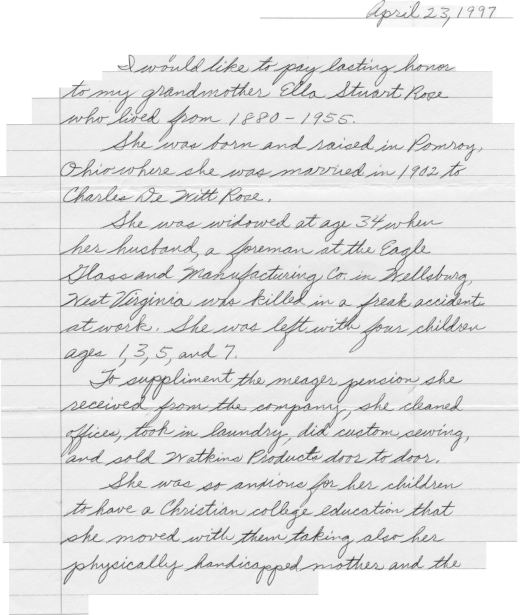 April 23, 1997
I would like to pay lasting honor
to my grandmother Ella Stuart Rose
who lived from 1880-1955.
She was born and raised in Pomroy,
Ohio where she was married in 1902 to
Charles De Witt Rose.
She was widowed at age 34 when
her husband, a foreman at the Eagle
Glass and Manufacturing Co. in Wellsburg,
West Virginia was killed in a freak accident
at work. She was left with four children
ages 1, 3, 5, and 7.
To suppliment the meager pension she
received from the company, she cleaned
offices, took in laundry, did custom sewing,
and sold Watkins Products door to door.
She was so anxious for her children
to have a Christian college education that
she moved with them taking also her
physically handicapped mother and the